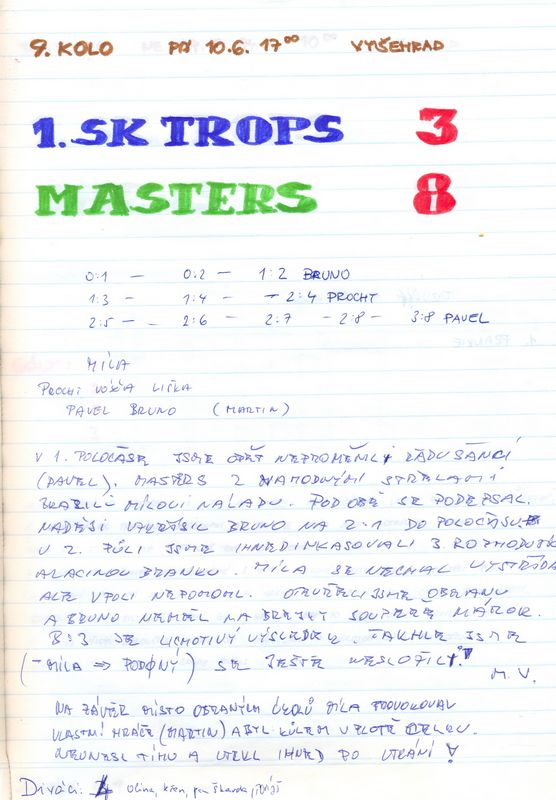 9. KOLO PÁ 10.6. 17⁰⁰ VYŠEHRAD
1. SK TROPS 3
MASTERS 8
0:1 — 0:2 — 1:2 BRUNO
1:3 — 1:4 — — 2:4 PROCHT
2:5 — — 2:6 — 2:7 — 2:8 — 3:8 PAVEL
MÍLA
PROCHT VÓŠA LIŠKA
PAVEL BRUNO (MARTIN)
V 1. POLOČASE JSME OPĚT NEPROMĚNILI ŘADU ŠANCÍ
(PAVEL). MASTERS 2 NÁHODNÝMI STŘELAMI
ZKAZILI MÍLOVI NÁLADU. POD OBĚ SE PODEPSAL.
NADĚJI VZKŘÍSIL BRUNO NA 2:1 DO POLOČASU
V 2. PŮLI JSME IHNED INKASOVALI 3. ROZHODUJÍC
A LACINOU BRANKU. MÍLA SE NECHAL VYSTŘÍDA
ALE V POLI NEPOMOHL. OTEVŘELI JSME OBRANU
A BRUNO NEMĚL NA BREJKY SOUPEŘE NÁROK.
8:3 JE LICHOTIVÝ VÝSLEDEK. TAKHLE JSME
(— MÍLA ⇒ PODOBNÝ) SE JEŠTĚ NESLOŽILI!
M. V.
NA ZÁVĚR MÍSTO OBRANNÝCH ÚKOLŮ MÍLA PROVOKOVAL
VLASTNÍ HRÁČE (MARTIN) A BYL KŮLEM V PLOTĚ CELKU.
NEUNESL TÍHU A UTEKL IHNED PO UTKÁNÍ!
Diváci: 4 pan Škarda,